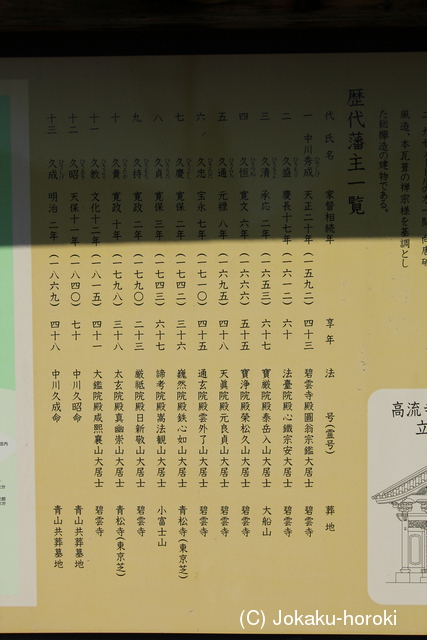 た総欅造の建物である。
風造、本瓦葺の禅宗様を基調とし
歴代藩主一覧
代 氏名 家督相続年 享年 法号(霊号) 葬地
一 中川秀成 天正二十年(一五九二) 四十三 碧雲寺殿圓翁宗鑑大居士 碧雲寺
二 久盛 慶長十七年(一六一二) 六十 法臺院殿心鐵宗安大居士 碧雲寺
三 久清 承応二年(一六五三) 六十七 寶厳院殿泰岳入山大居士 大船山
四 久恒 寛文六年(一六六六) 五十五 寶浄院殿榮松久山大居士 碧雲寺
五 久通 元禄八年(一六九五) 四十八 天眞院殿元良貞山大居士 碧雲寺
六 久忠 宝永七年(一七一〇) 四十五 通玄院殿雲外了山大居士 碧雲寺
七 久慶 寛保二年(一七四二) 三十六 巍然院殿鉄心如山大居士 青松寺(東京芝)
八 久貞 寛保三年(一七四三) 六十七 諦考院殿嵩法観山大居士 小富士山
九 久持 寛政二年(一七九〇) 二十三 厳祗院殿日新敬山大居士 碧雲寺
十 久貴 寛政十年(一七九八) 三十八 太玄院殿真幽崇山大居士 青松寺(東京芝)
十一 久教 文化十二年(一八一五) 四十一 大鑑院殿咸熙襄山大居士 碧雲寺
十二 久昭 天保十一年(一八四〇) 七十 中川久昭命 青山共葬墓地
十三 久成 明治二年(一八六九) 四十八 中川久成命 青山共葬墓地
高流寺
立
(C) Jokaku-horoki